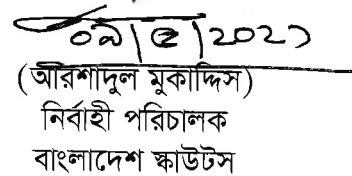 ০৯|৫|2021
(আরশাদুল মুকাদ্দিস)
নির্বাহী পরিচালক
বাংলাদেশ স্কাউটস